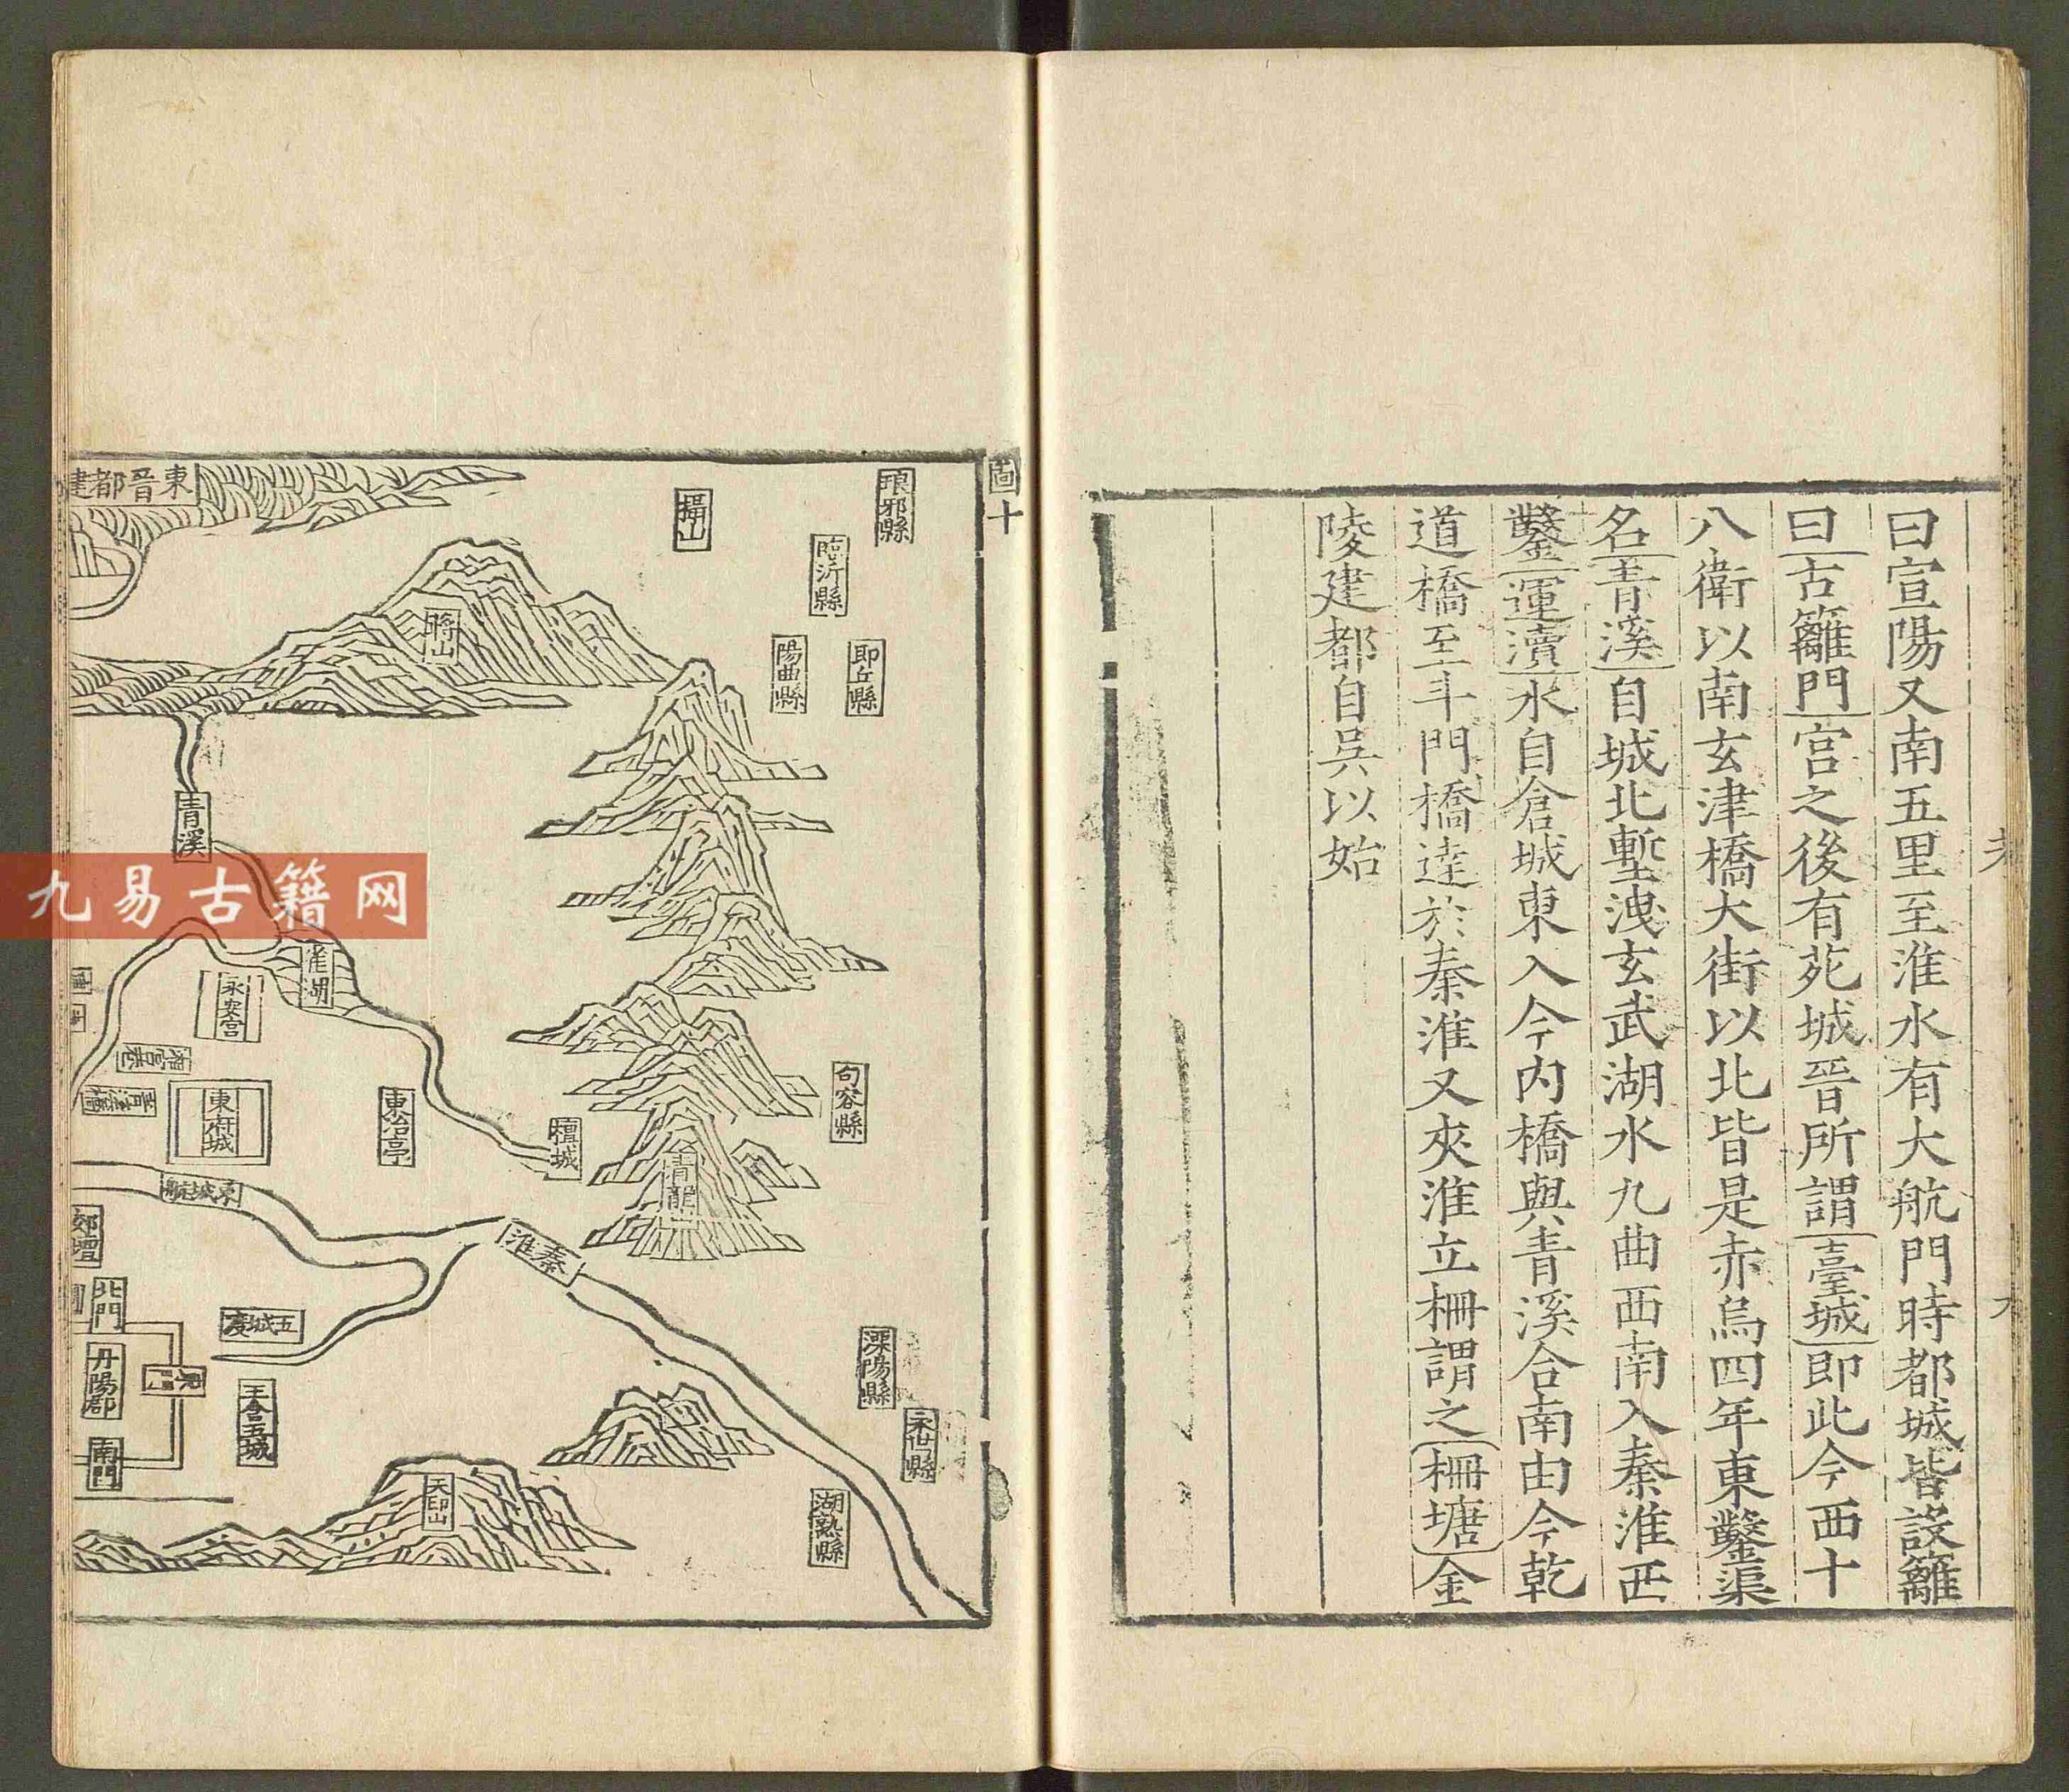 曰宣陽又南五里至淮水有大航門時都城皆設籬
曰古籬門宫之後有苑城晉所謂臺城即此今西十
八衛以南玄津橋大街以北皆是赤烏四年東鑿渠
名青溪自城北塹洩玄武湖水九曲西南入秦淮西
鑿運瀆水自倉城東入今内橋與青溪合南由今乾
道橋至斗門橋逹於秦淮又夾淮立柵謂之柵塘金
陵建都自吳以始
圖十
琅邪縣
臨沂縣
即丘縣
陽曲縣
攝山
句容縣
溧陽縣
永世縣
湖熟縣
蔣山
青龍
秦淮
檀城
東冶亭
天印山
雀湖
永安宫
東府城
五城渡
王含五城
青溪
東晉都建
郊壇
北門
丹陽郡
南門
九易古籍网